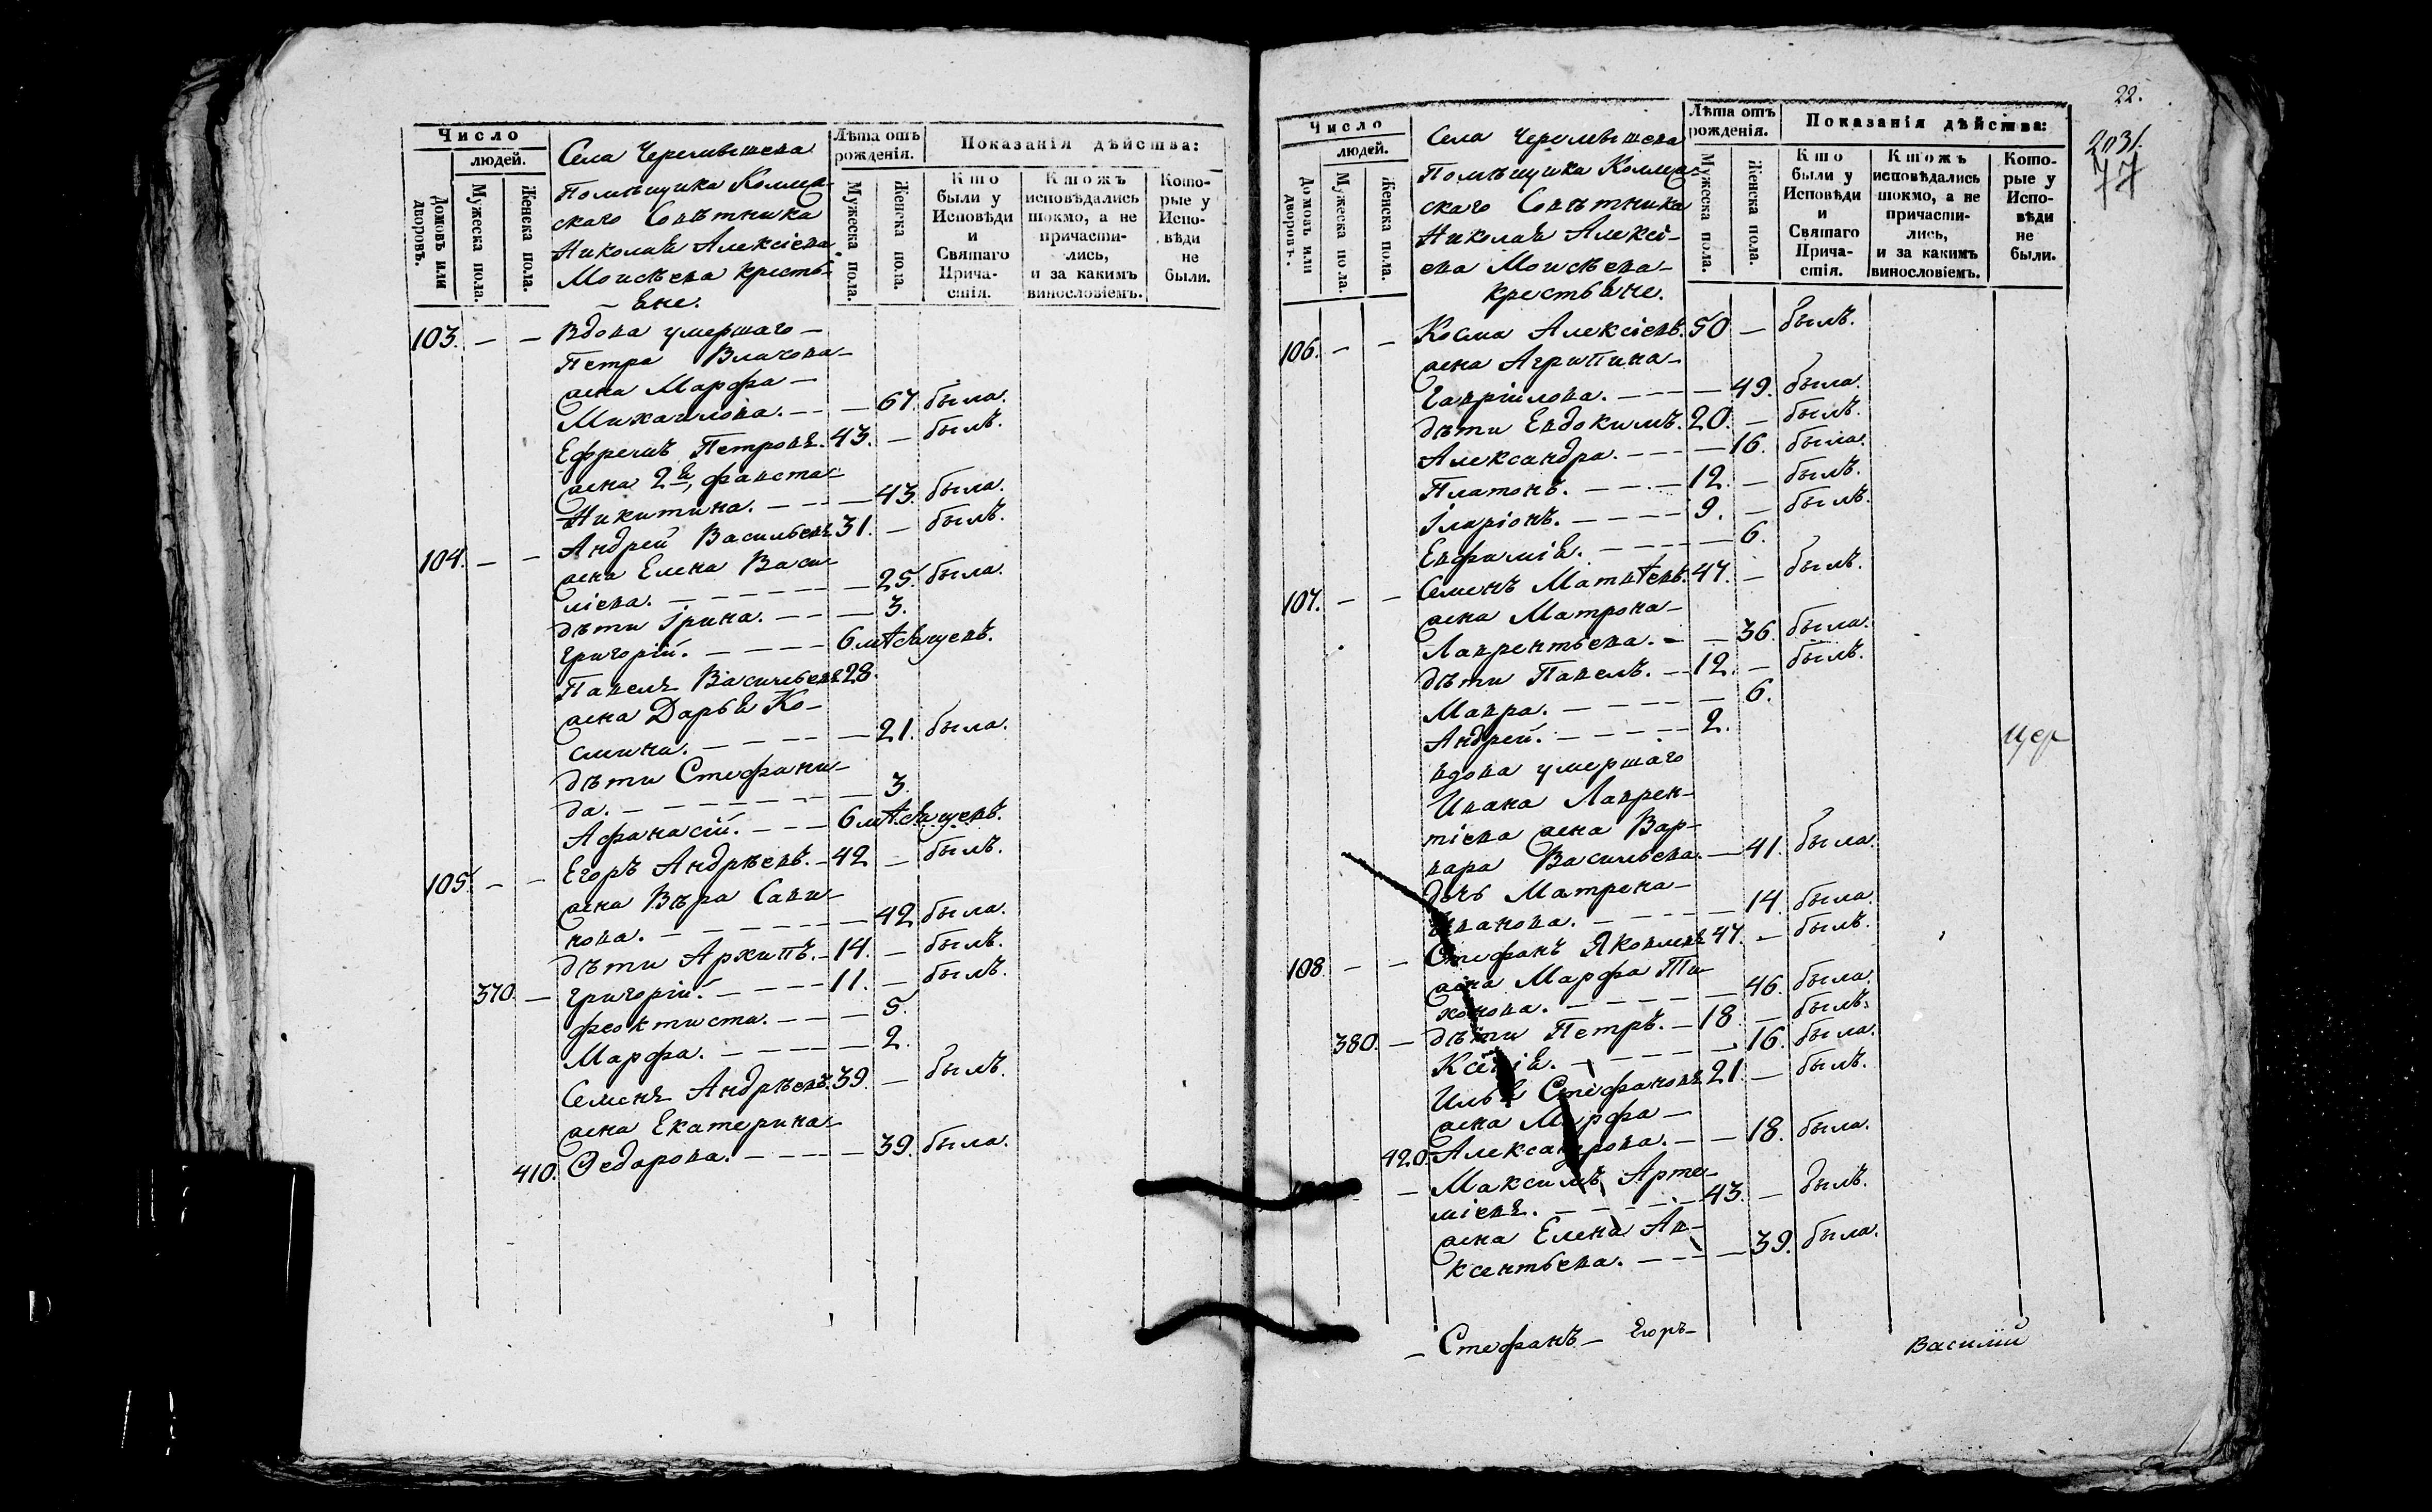 Число
людей.
Домовъ или дворовъ.
Мужеска пола.
Женска пола.
Села Черемышева
Помѣщика Колле-
скаго Совѣтника
Николая Алексіева
Моисѣева кресть-
яне.
Лѣта отъ рожденія.
Мужеска пола.
Женска пола.
Показанія дѣйства:
Кто были у Исповѣди и Святаго Прича-стія.
Ктожъ исповѣдались токмо, а не причасти-лись, и за какимъ винословіемъ.
Кото-рые у Испо-вѣди не были.
103. — — Вдова умершаго —
Петра Власова
жена Марфа —
Михаилова. — — — 67. была.
Ефремъ Петровъ. 43. — былъ.
жена 2я, фавста
Никитина. — — — 43. была.
104. — — Андрей Васильевъ 31. — былъ.
жена Елена Васи-
ліева. — — — 25. была.
дѣти Ірина. — — — 3.
Григорій. — — — 6 мѣсяцевъ.
Павелъ Васильевъ 28.
жена Дарья Ко-
смина. — — — 21. была.
дѣти Стефани-
да. — — — 3.
Афанасій. — — — 6 мѣсяцевъ.
105. — — Егоръ Андрѣевъ. — 42 — былъ.
жена Вѣра Сави-
нова. — — — 42 была.
дѣти Архипъ. — 14. — былъ.
370. — Григорій. — — — 11. — былъ.
феоктиста. — — — 5.
Марфа. — — — 2.
Семенъ Андрѣевъ. 39. — былъ.
жена Екатерина
410. Федорова. — — — 39. была.
22.
2031.
77
Число
людей.
Домовъ или дворовъ.
Мужеска пола.
Женска пола.
Села Черемышева
Помѣщика Колле-
скаго Совѣтника
Николая Алексі-
ева Моисѣева —
крестьяне.
Лѣта отъ рожденія.
Мужеска пола.
Женска пола.
Показанія дѣйства:
Кто были у Исповѣди и Святаго Прича-стія.
Ктожъ исповѣдались токмо, а не причасти-лись, и за какимъ винословіемъ.
Кото-рые у Испо-вѣди не были.
106. — — Косма Алексіевъ. 50 — былъ.
жена Агрипина —
Гавріилова. — — — 49. была.
дѣти Евдокимъ. 20. — былъ.
Александра. — — — 16. была.
Платонъ. — — — 12. — былъ.
Іларіонъ. — — — 9. — былъ.
Евфимія. — — — 6.
107. — — Семенъ Матвѣевъ. 47. — былъ.
жена Матрона —
Лаврентьева. — — 36. была.
дѣти Павелъ. — 12. — былъ.
Мавра. — — — 6.
Андрей. — — — 2.
вдова умершаго
Ивана Лаврен-
тіева жена Вар-
вара Васильева. — 41. была.
дочь Матрена —
Иванова. — — — 14. была.
108. — — Стефанъ Яковлевъ 47. — былъ.
жена Марфа Ти-
хонова. — — — 46. была.
380. — дѣти Петръ. — 18. — былъ.
Ксенія. — — — 16. была.
Илья Стефановъ 21. — былъ.
жена Марфа —
420. Александрова. — — 18. была.
— Максимъ Арте-
міевъ. — — — 43. — былъ.
жена Елена Ав-
ксентьева. — — — 39. была.
Цер
— Стефанъ — Егоръ —
Василій